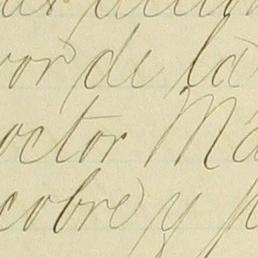 or de la
octor Ma
cobre y p